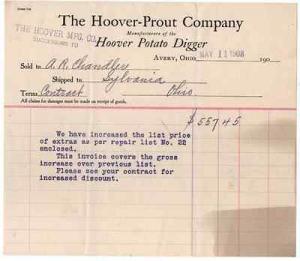 The Hoover-Prout Company
THE HOOVER MFG. CO.
SUCCESSORS TO
Manufacturers of the
Hoover Potato Digger
AVERY, OHIO, MAY 11 1908 190
Sold to A.R. Chandler
Shipped to Sylvania
Terms Contract Ohio.
All claims for damages must be made on receipt of goods.
$ 557 45
We have increased the list price
of extras as per repair list No. 22
enclosed.
This invoice covers the gross
increase over previous list.
Please see your contract for
increased discount.